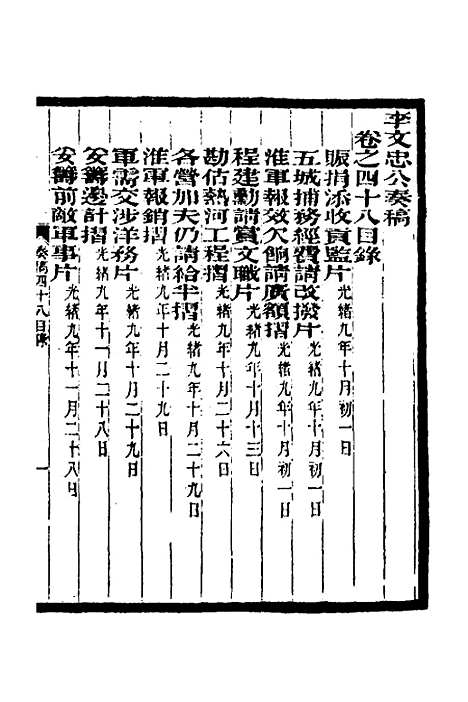 李文忠公奏稿
卷之四十八目錄
賑捐添收貢監片 光緒九年十月初一日
五城捕務經費請改撥片 光緒九年十月初一日
淮軍報效欠餉請廣額摺 光緒九年十月初一日
程建勳請賞文職片 光緒九年十月十三日
勘估熱河工程摺 光緒九年十月二十六日
各營加夫仍請給半摺 光緒九年十月二十九日
淮軍報銷摺 光緒九年十月二十九日
軍需交涉洋務片 光緒九年十月二十九日
妥籌邊計摺 光緒九年十一月二十八日
妥籌前敵軍事片 光緒九年十一月二十八日
奏稿四十八目錄 一